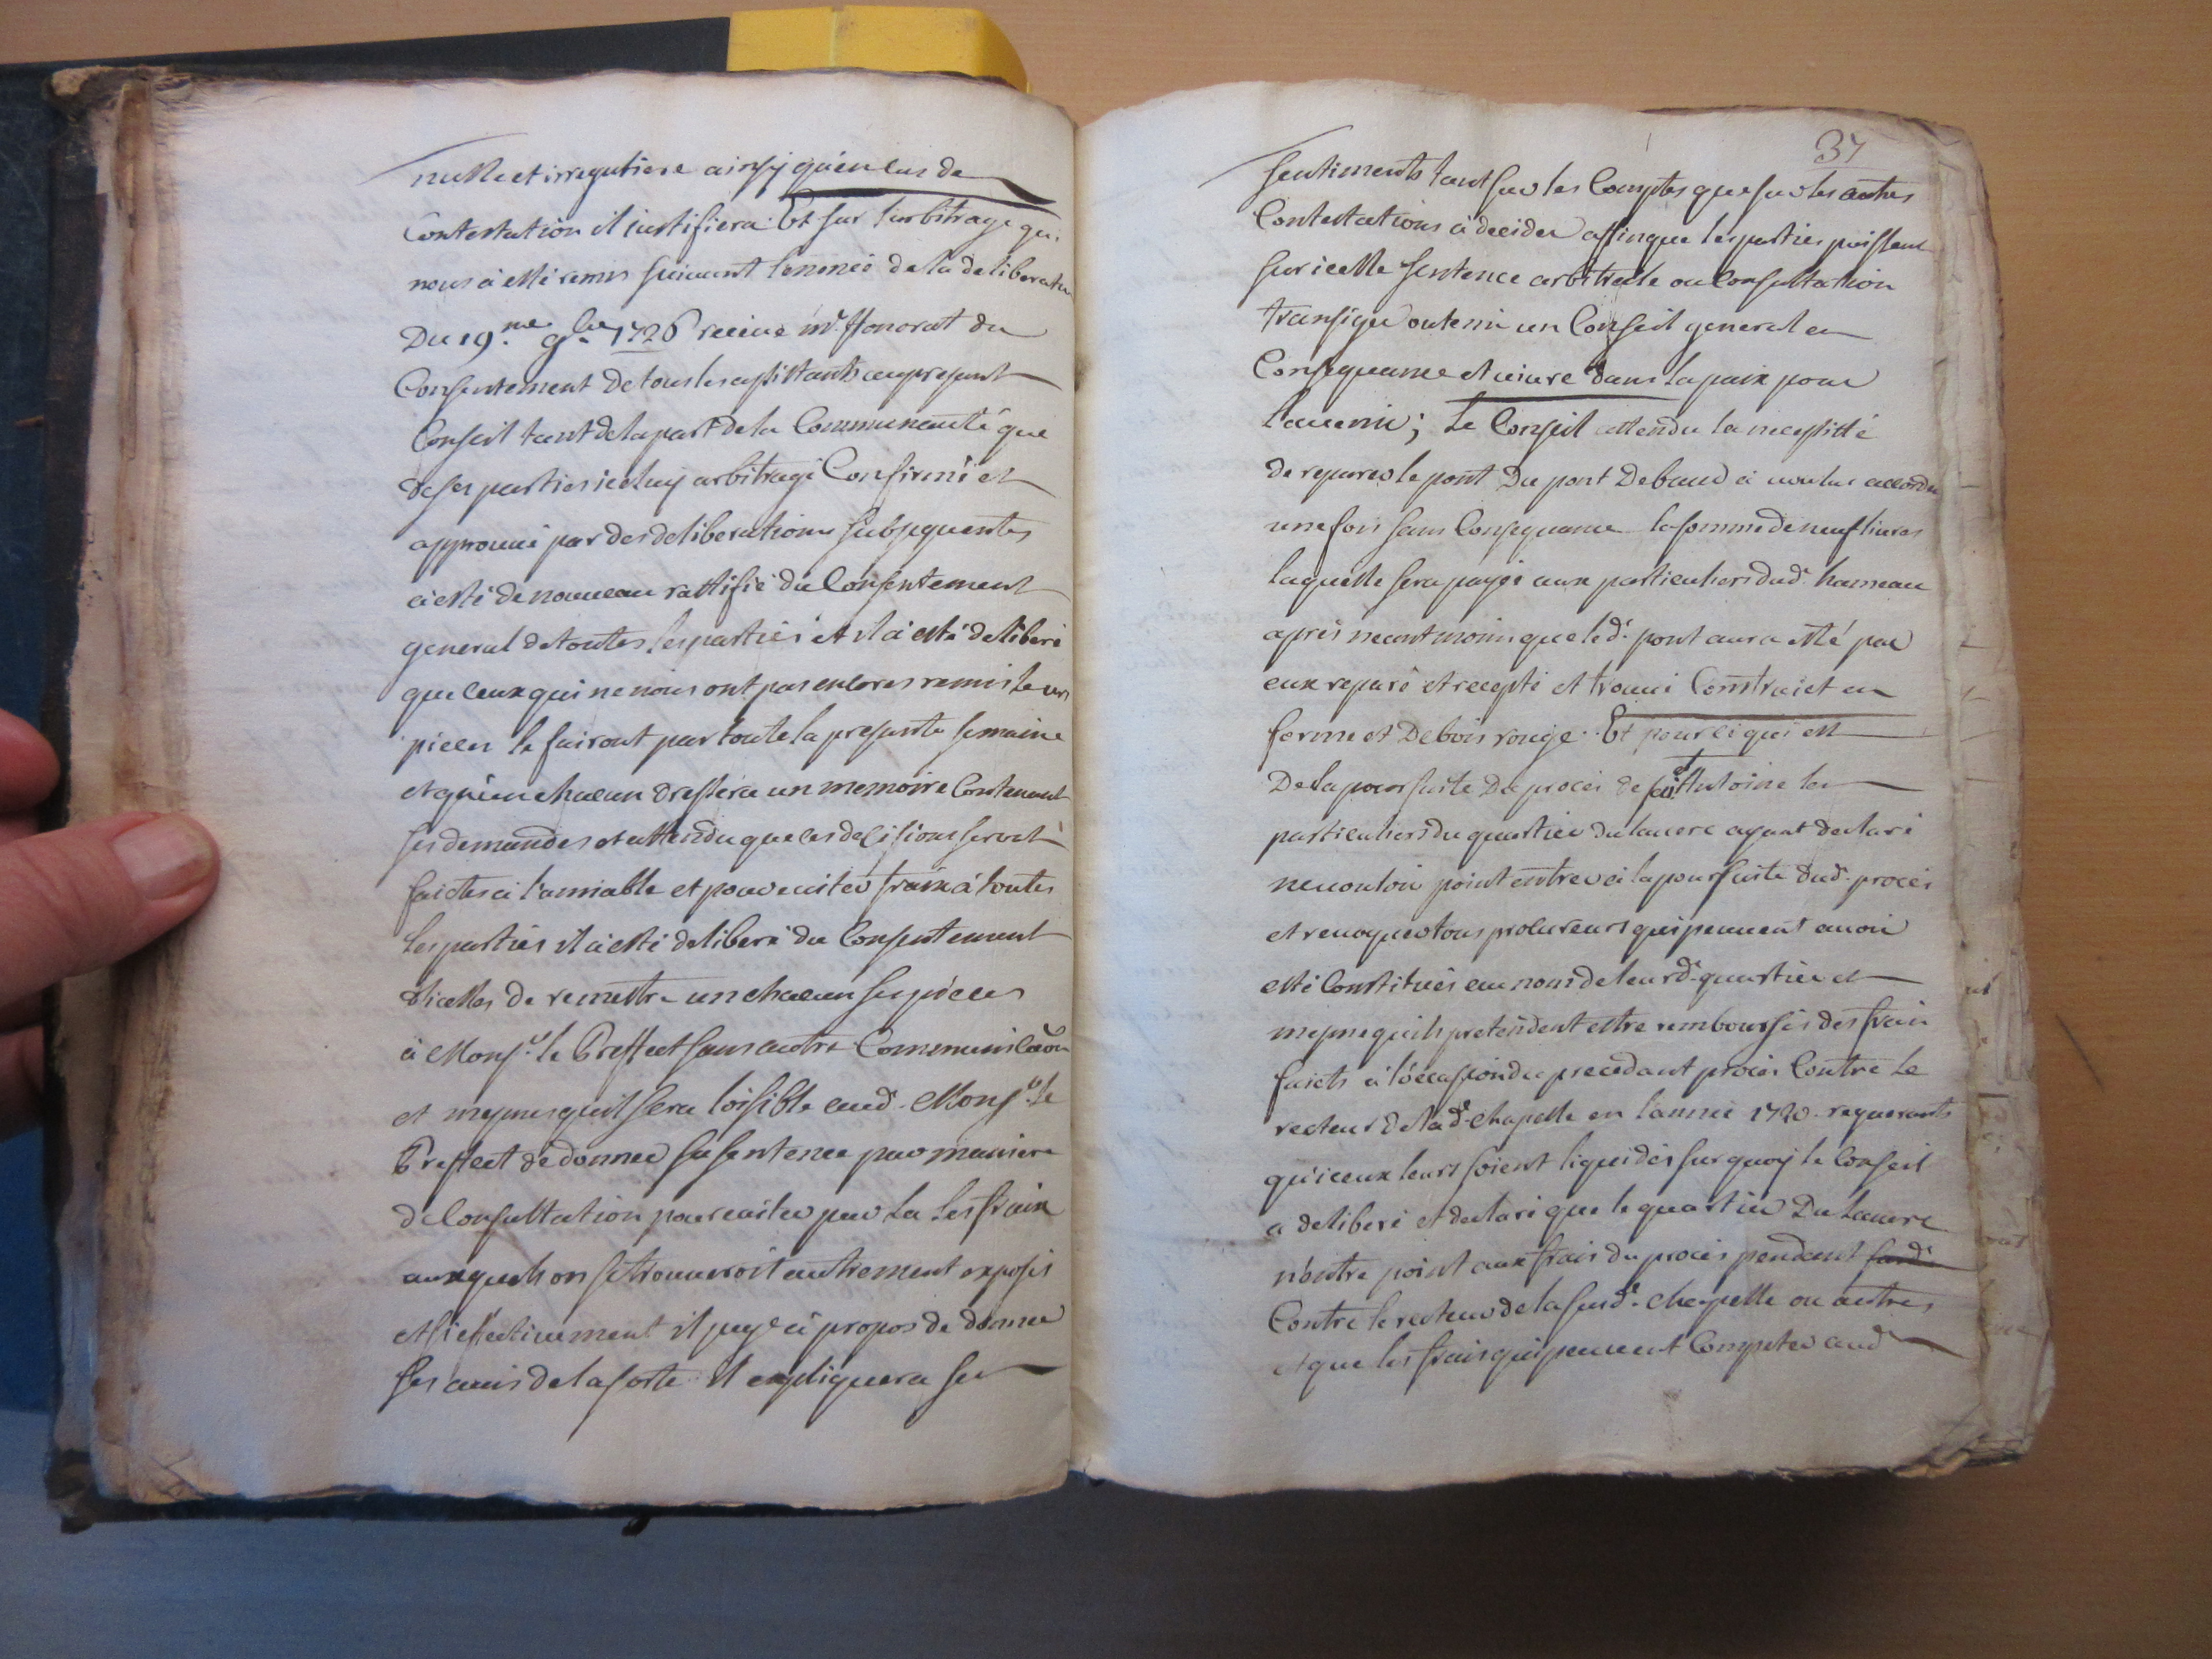 nulle et irreguliere ainsy qu'en cas de
Contestation il justifiera. Et sur l'arbitrage qui
nous à esté remis suivant l'enoncé de la deliberation
Du 19.me 9.bre 1726 receue m.e Honorat du
Consentement de tous les assistants au present
Conseil tant de la part de la Communauté que
de ses parties iceluy arbitrage Confirmé et
approuvé par des deliberations subsequentes
à esté de nouveau rattifié du Consentement
general de toutes les parties et il à esté deliberé
que ceux qui ne nous ont pas encores remis leurs
pieces le fairont par toute la presente semaine
et qu'un chacun dressera un memoire Contenant
ses demandes et attendu que ces decisions seront
faictes à l'amiable et pour eviter fraix à toutes
les parties il à esté deliberé du Consentement
d'icelles de remettre un chacun ses pieces
à Mons.r le Preffect sans autre Communica͠on
et mesmes quil sera loisible aud. Mons.r le
Preffect de donner sa sentence par maniere
de Consultation pour eviter par la les fraix
auxquels on se trouveroit autrement exposés
et si effectivement il juge à propos de donner
ses avis de la sorte il expliquera ses
37
sentiments tant sur les Comptes que sur les autres
Contestations à decider affinque les parties puissent
sur icelle sentence arbitrale ou Consultation
transiger ou tenir un Conseil general en
Consequence et vivre dans la paix pour
l'avenir; Le Conseil attendu la necessité
de reparer le pont Du pont Debaud à voulu accorder
une fois sans Consequance la somme de neuf livres
laquelle sera payée aux particuliers dud. hameau
après neantmoins que led. pont aura esté par
eux reparé et recepté et trouvé Construict en
forme et De bois rouge. Et pour ce qui est
De la poursuite Du procés de S.t Antoine les
particuliers du quartier du Lauere ayant declaré
ne vouloir point entrer à la poursuite dud. procés
et revoquer tous procureurs qui peuvent avoir
esté Constitués au nom de leurd. quartier et
mesme quils pretendent estre remboursés des frais
faicts à l'occasion du precedant procés Contre le
recteur de lad. chapelle en l'année 1720 requerants
qu'iceux leurs soient liquidés sur quoy le Conseil
a deliberé et declaré que le quartier Du Lauere
n'entre point aux frais du procés pendant
Contre le recteur de la susd. chapelle ou autres
et que les frais qui peuvent Compéter aud.